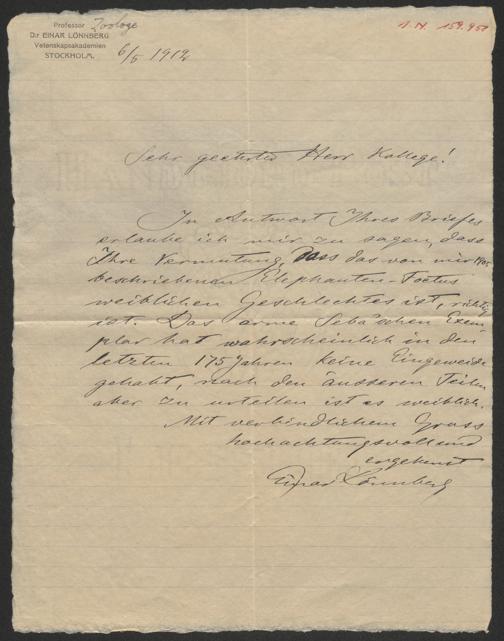 Professor Zoologe
D:r EINAR LÖNNBERG
Vetenskapsakademien
STOCKHOLM.
6/5 1912
I. N. 159.951
Sehr geehrter Herr Kollege!
In Antwort Ihres Briefes
erlaube ich mir zu sagen, dass
Ihre Vermutung, dass das von mir
beschriebenen Elephanten-Foetus
weiblichen Geschlechtes ist, richtig
ist. Das arme Seba'schen Exem-
plar hat wahrscheinlich in den
letzten 175 Jahren keine Eingeweide
gehabt, nach den äusseren Teilen
aber zu urteilen ist es weiblich.
Mit verbindlichem Gruss
hochachtungsvoll und
ergebenst
Einar Lönnberg